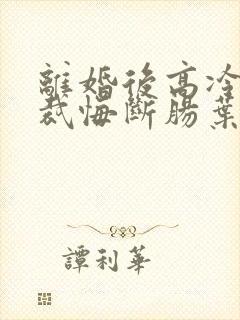 離婚後高冷
裁悔斷腸葉
譚利華